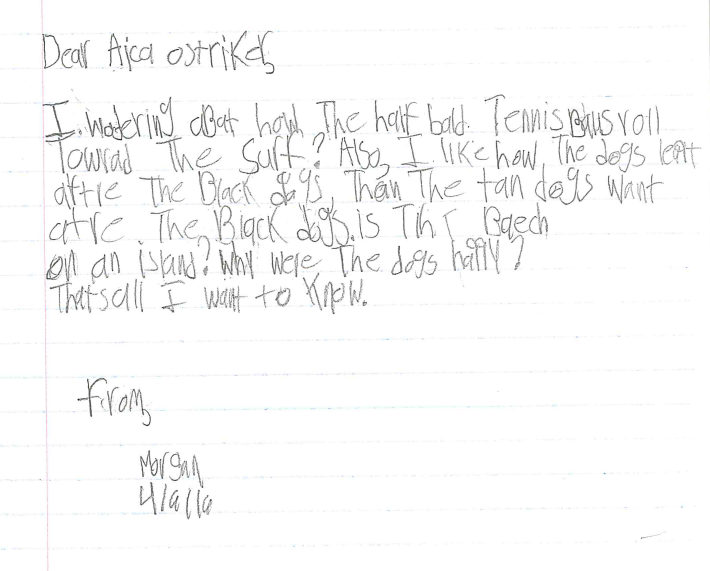 Dear Aica ostriker,
I. wodering abat how The half bald Tennis Bauls roll
Towrad The Surf? Also, I like how The dogs leatt
aftre The Black dogs, Than The tan dogs want
aftre The Black dogs. is Tihr Baech
on an island? Why were The dogs happy?
Thatsall I want to Know.
From,
Morgan